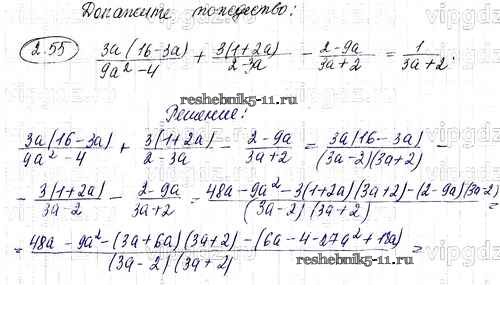 Докажите тождество:
2.55 3a(16-3a)/(9a²-4) + 3(1+2a)/(2-3a) - (2-9a)/(3a+2) = 1/(3a+2).
reshebnik5-11.ru
Решение:
3a(16-3a)/(9a²-4) + 3(1+2a)/(2-3a) - (2-9a)/(3a+2) = 3a(16-3a)/((3a-2)(3a+2)) -
- 3(1+2a)/(3a-2) - (2-9a)/(3a+2) = (48a-9a²-3(1+2a)(3a+2)-(2-9a)(3a-2))/((3a-2)(3a+2)) =
= (48a-9a²-(3a+6a)(3a+2)-(6a-4-27a²+18a))/((3a-2)(3a+2)) =
reshebnik5-11.ru